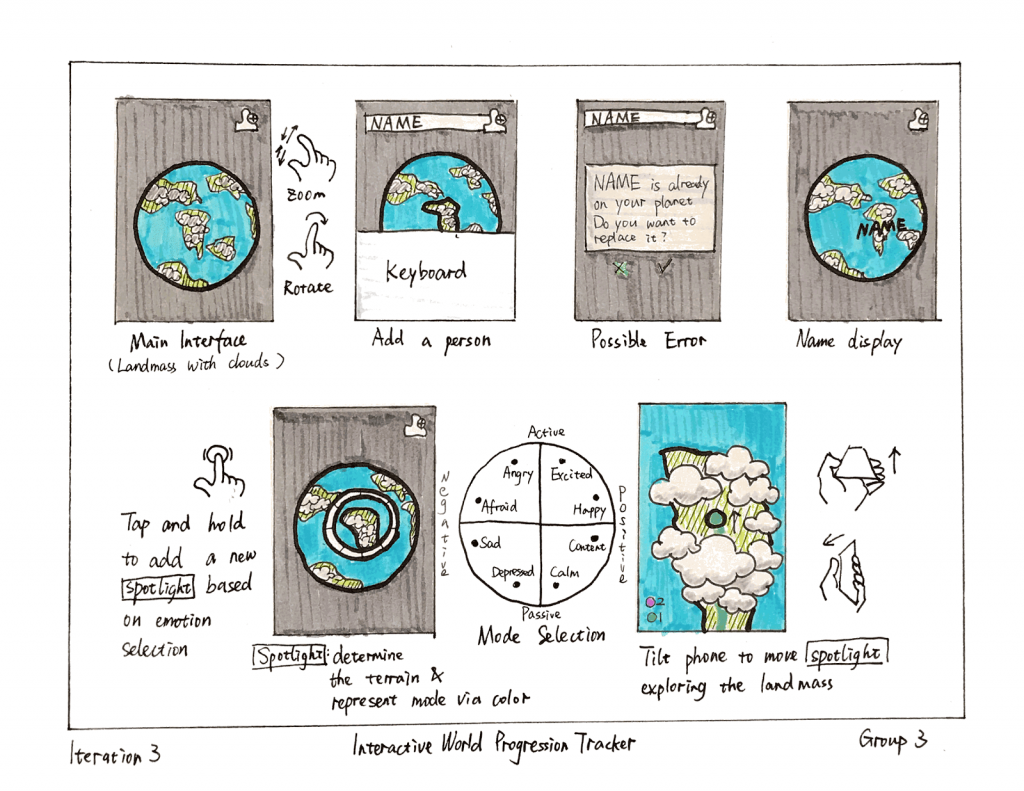 Zoom
Rotate
Main Interface
(Landmass with clouds)
NAME
Keyboard
Add a person
NAME
NAME is already
on your planet
Do you want to
replace it?
Possible Error
NAME
Name display
Tap and hold
to add a new
spotlight based
on emotion
selection
Spotlight: determine
the terrain &
represent mode via color
Negative
Active
Angry
Excited
Afraid
Happy
Sad
Content
Depressed
Calm
Passive
Possitive
Mode Selection
2
1
Tilt phone to move spotlight
exploring the landmass
Iteration 3
Interactive World Progression Tracker
Group 3